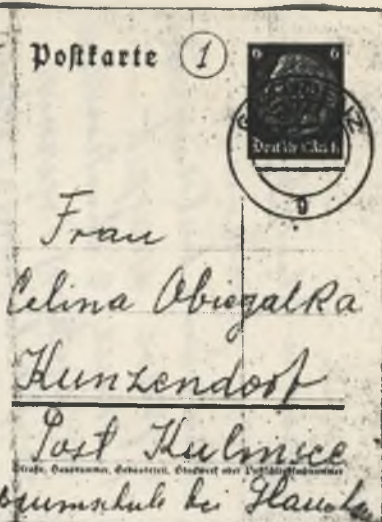 Postkarte 1
6 6
Deutsches Reich
Frau
Celina Obiegalka
Kunzendorf
Post Kulmsee
Straße, Hausnummer, Gebäudeteil, Stockwerk oder Postschließfachnummer
bei